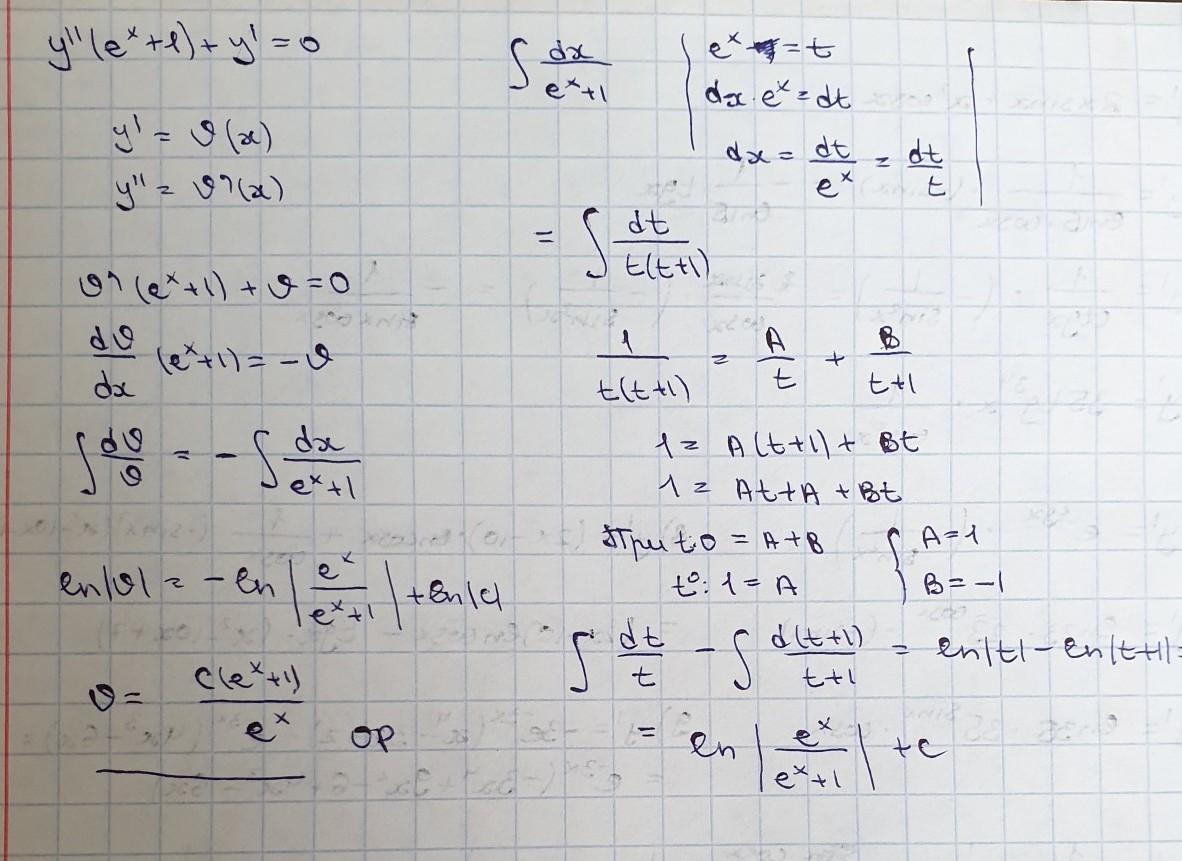 y''(eˣ+1)+y'=0
y' = ϑ(x)
y'' = ϑ'(x)
ϑ'(eˣ+1)+ϑ=0
dϑ/dx (eˣ+1)=-ϑ
∫ dϑ/ϑ = -∫ dx/(eˣ+1)
ln|ϑ| = -ln|eˣ/(eˣ+1)|+ln|c|
ϑ= c(eˣ+1)/eˣ ОР
∫ dx/(eˣ+1) | eˣ = t
dx·eˣ=dt
dx = dt/eˣ = dt/t |
= ∫ dt/(t(t+1))
1/(t(t+1)) = A/t + B/(t+1)
1= A(t+1)+ Bt
1= At+A+Bt
При t: 0 = A+B { A=1
t⁰: 1=A B=-1
∫ dt/t - ∫ d(t+1)/(t+1) = ln|t|-ln|t+1|=
= ln|eˣ/(eˣ+1)| +c